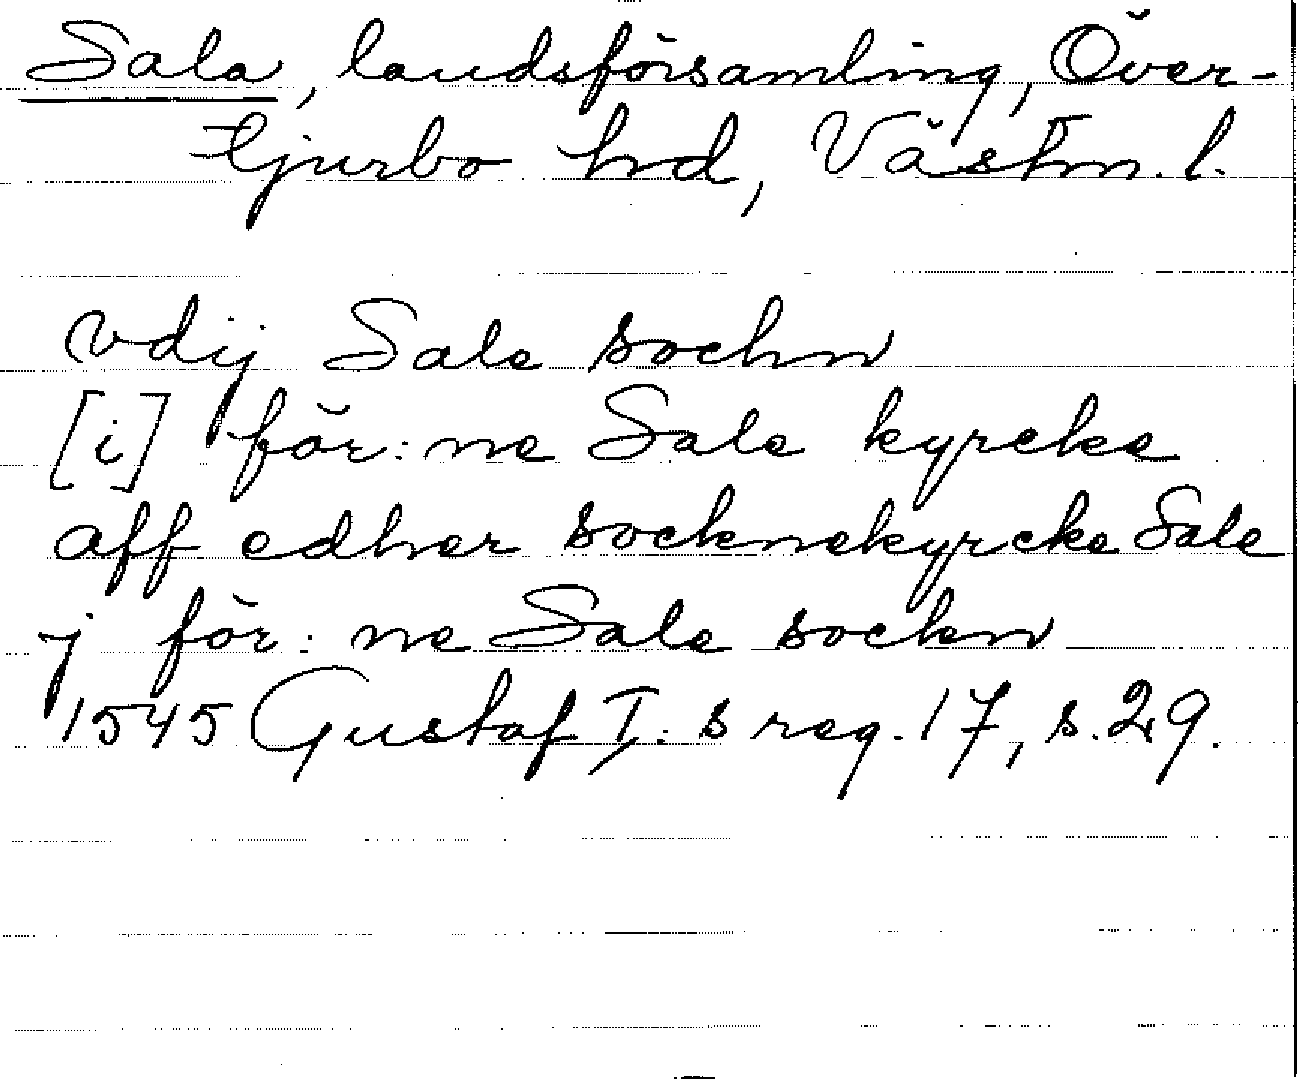 Sala, landsförsamling, Över-
tjurbo hd, Västm. l.
vdij Sale sochn
[i] för:ne Sale kyrcke
aff edher socknekyrcke Sale
j för:ne Sale sockn
1545 Gustaf I:s reg. 17, s. 29.